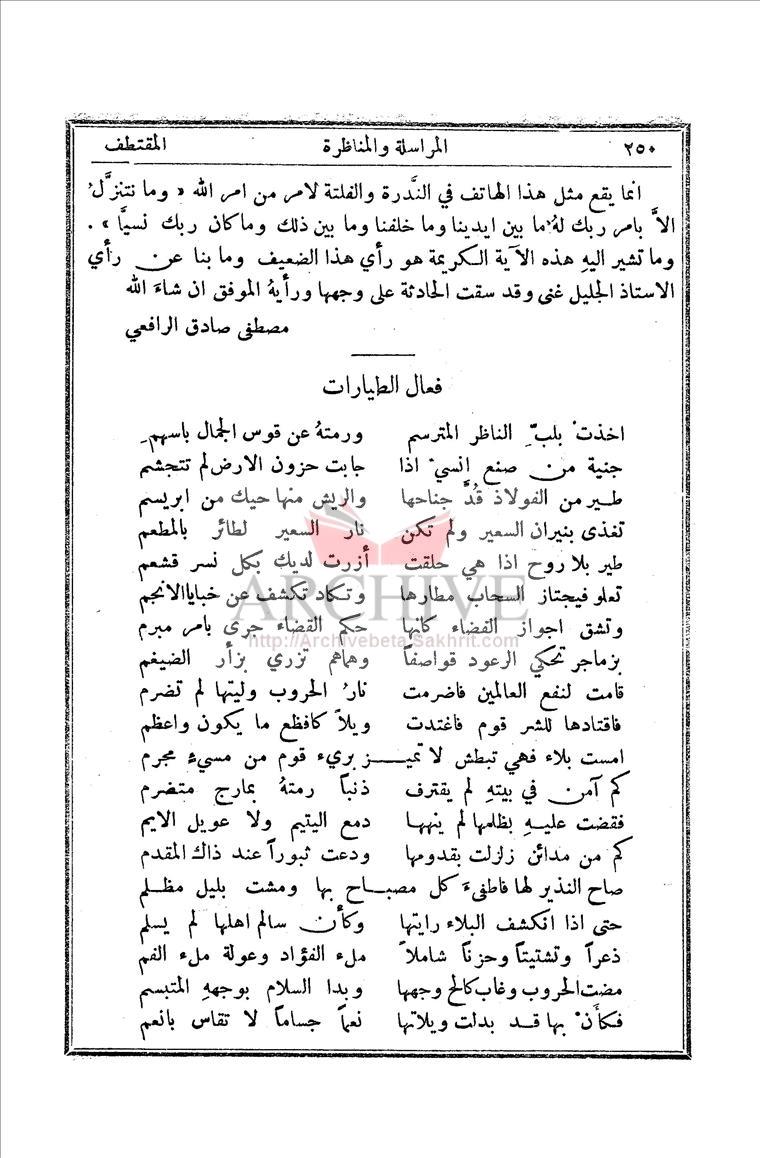 ٢٥٠ المراسلة والمناظرة المقتطف
انما يقع مثل هذا الهاتف في النَّدرة والفلتة لامر من امر الله « وما نتنزَّلُ
الاَّ بامر ربك لهُ ما بين ايدينا وما خلفنا وما بين ذلك وماكان ربك نسيًّا » .
وما تشير اليهِ هذه الآية الكريمة هو رأي هذا الضعيف وما بنا عن رأي
الاستاذ الجليل غنى وقد سقت الحادثة على وجهها ورأيهُ الموفق ان شاءَ الله
مصطفى صادق الرافعي
فعال الطيارات
اخذتْ بلبِّ الناظر المترسم ورمتهُ عن قوس الجمال باسهمِ
جنية من صنع انسيْ اذا جابت حزون الارض لم تتجشم
طير من الفولاذ قُدَّ جناحها والريش منها حيك من ابريسم
تغذى بنيران السعير ولم تكن نار السعير لطائر بالمطعم
طير بلا روح اذا هي حلقت أزرت لديك بكل نسر قشعم
تعلو فيجتاز السحاب مطارها وتكاد تكشف عن خبايا الانجم
وتشق اجواز الفضاء كانها حكم القضاء جرى بامر مبرم
بزماجر تحكي الرعود قواصفاً وهماهم تزري بزأر الضيغم
قامت لنفع العالمين فاضرمت نارُ الحروب وليتها لم تضرم
فاقتادها للشر قوم فاغتدت ويلاً كافظع ما يكون واعظم
امست بلاء فهي تبطش لا تميز بريء قوم من مسيءٍ مجرم
كم آمن في بيتهِ لم يقترف ذنباً رمتهُ بمارج متضرم
فقضت عليهِ بظلمها لم ينهها دمع اليتيم ولا عويل الايم
كم من مدائن زلزلت بقدومها ودعت ثبوراً عند ذاك المقدم
صاح النذير لها فاطفىءَ كل مصباح بها ومشت بليل مظلم
حتى اذا انكشف البلاء رايتها وكأن سالم اهلها لم يسلم
ذعراً وتشتيتاً وحزناً شاملاً ملء الفؤاد وعولة ملء الفم
مضت الحروب وغاب كالح وجهها وبدا السلام بوجههِ المتبسم
فكأنْ بها قد بدلت ويلاتها نعماً جساماً لا تقاس بانعم
ARCHIVE
http://Archivebeta.Sakhrit.com